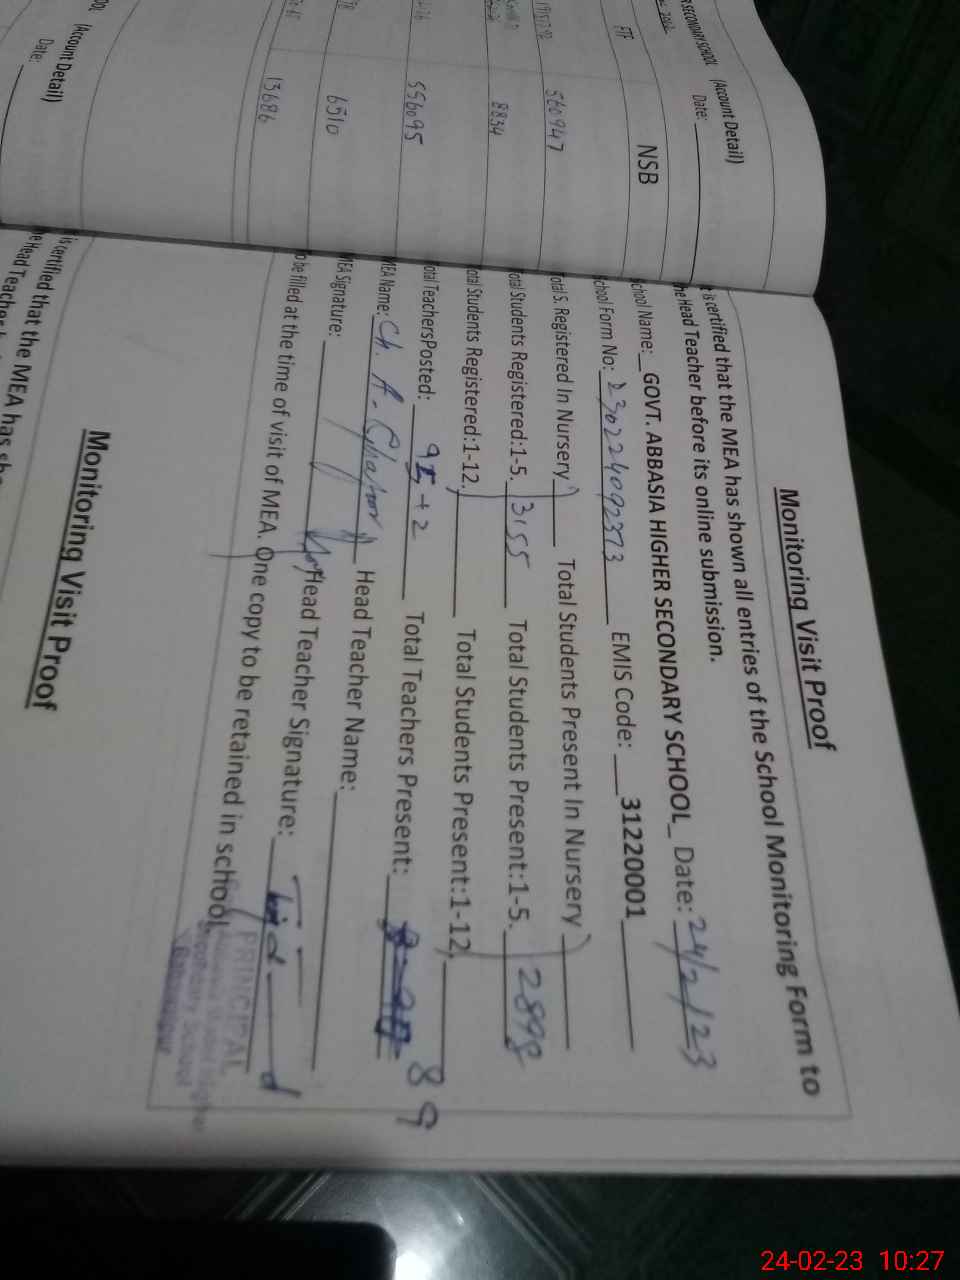 Monitoring Visit Proof
It is certified that the MEA has shown all entries of the School Monitoring Form to
the Head Teacher before its online submission.
School Name:__GOVT. ABBASIA HIGHER SECONDARY SCHOOL_ Date: 24/2/23
School Form No: 230224092373 EMIS Code: ___31220001
Total S. Registered In Nursery Total Students Present In Nursery
Total Students Registered:1-5. 3155 Total Students Present:1-5. 2898
Total Students Registered:1-12. Total Students Present:1-12,
Total TeachersPosted: +2 Total Teachers Present: 89
MEA Name: Ch. A. Head Teacher Name:
MEA Signature: Head Teacher Signature:
To be filled at the time of visit of MEA. One copy to be retained in school.
PRINCIPAL
Secondary School
Monitoring Visit Proof
is certified that the MEA has
e Head Teacher
SECONDARY SCHOOL (Account Detail)
Date:
FTF NSB
560947
8834
556095
6510
13686
(Account Detail)
Date:
24-02-23 10:27